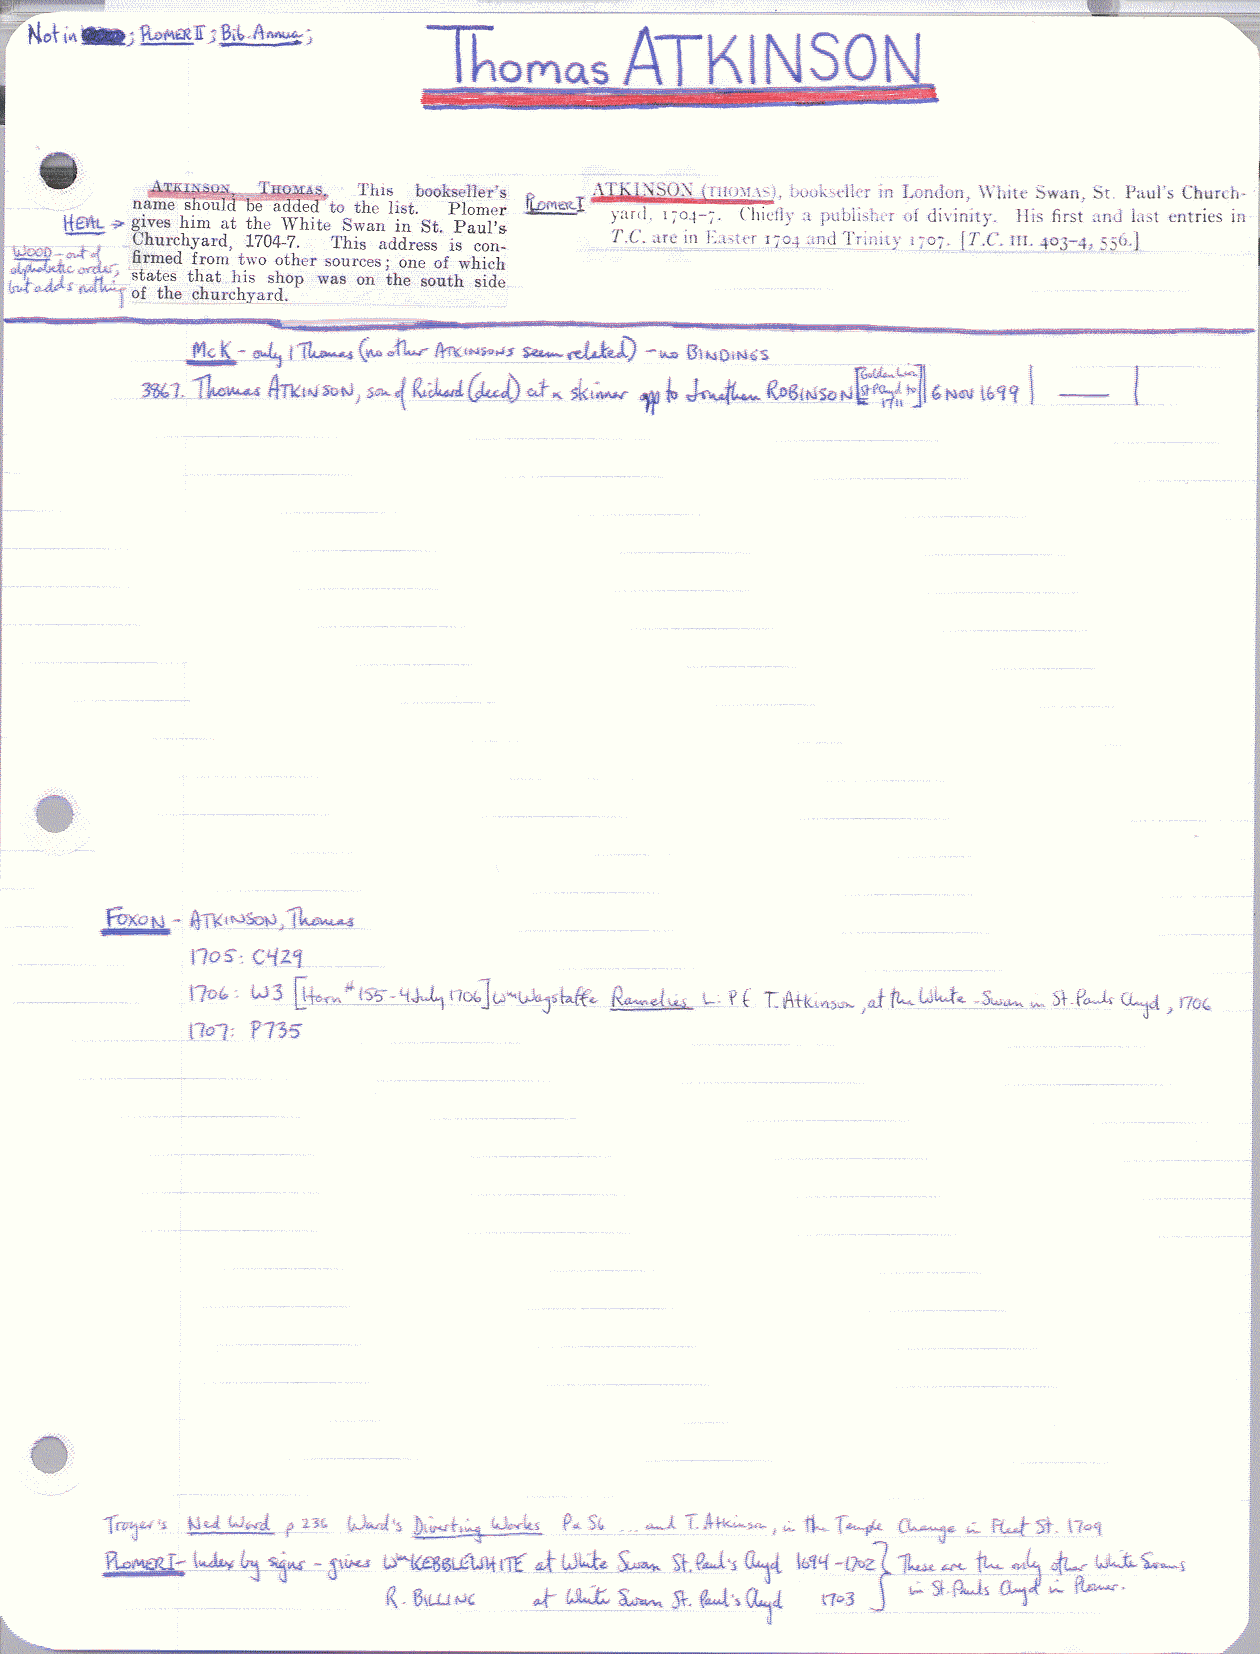 Not in ; PLOMER II; Bib. Annua;
Thomas ATKINSON
ATKINSON, THOMAS. This bookseller's
name should be added to the list. Plomer
gives him at the White Swan in St. Paul's
Churchyard, 1704-7. This address is con-
firmed from two other sources; one of which
states that his shop was on the south side
of the churchyard.
HEAL →
WOOD - out of
alphabetic order,
but adds nothing
PLOMER I
ATKINSON (THOMAS), bookseller in London, White Swan, St. Paul's Church-
yard, 1704-7. Chiefly a publisher of divinity. His first and last entries in
T.C. are in Easter 1704 and Trinity 1707. [T.C. III. 403-4, 556.]
McK - only 1 Thomas (no other ATKINSONS seem related) - no BINDINGS
3867. Thomas ATKINSON, son of Richard (decd) cit & skinner app to Jonathan ROBINSON [Golden Lion St P Chyd to 1711] | 6 NOV 1699 | — |
FOXON - ATKINSON, Thomas
1705: C429
1706: W3 [Horn # 155 - 4 July 1706] Wm Wagstaffe Ramelies L: P f T. Atkinson, at the White-Swan in St. Pauls Chyd, 1706
1707: P735
Troyer's Ned Ward p 236 Ward's Diverting Works Pa 56 ... and T. Atkinson, in the Temple Change in Fleet St. 1709
PLOMER I - Index by signs - gives Wm KEBBLEWHITE at White Swan St. Paul's Chyd 1694-1702 } These are the only other White Swans
R. BILLING at White Swan St. Paul's Chyd 1703 } in St. Pauls Chyd in Plomer.